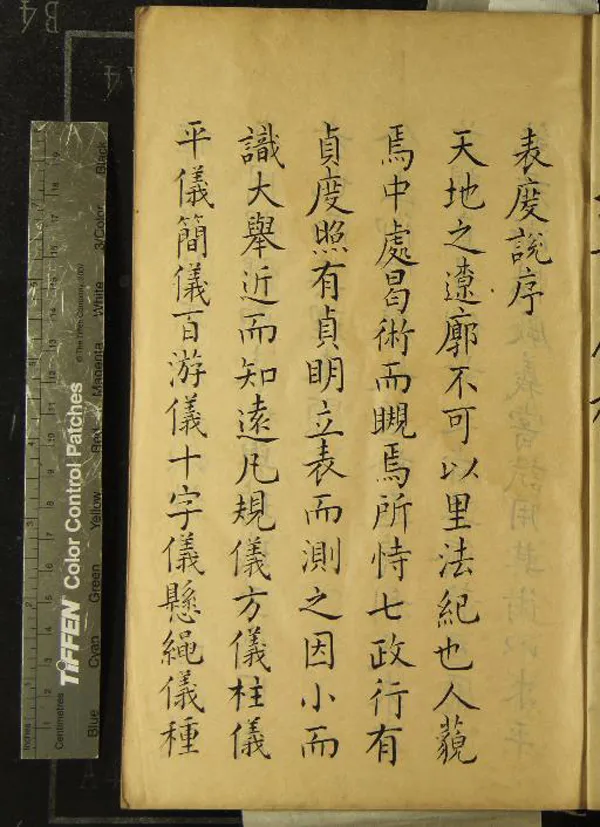 表度說序
天地之遼廓不可以里法紀也人藐
焉中處曷術而覸焉所恃七政行有
貞度照有貞明立表而測之因小而
識大舉近而知遠凡規儀方儀柱儀
平儀簡儀百游儀十字儀懸繩儀種
TIFFEN Color Control Patches
© The Tiffen Company, 2007
Blue Cyan Green Yellow Red Magenta White 3/Color Black
Inches
Centimetres
B4